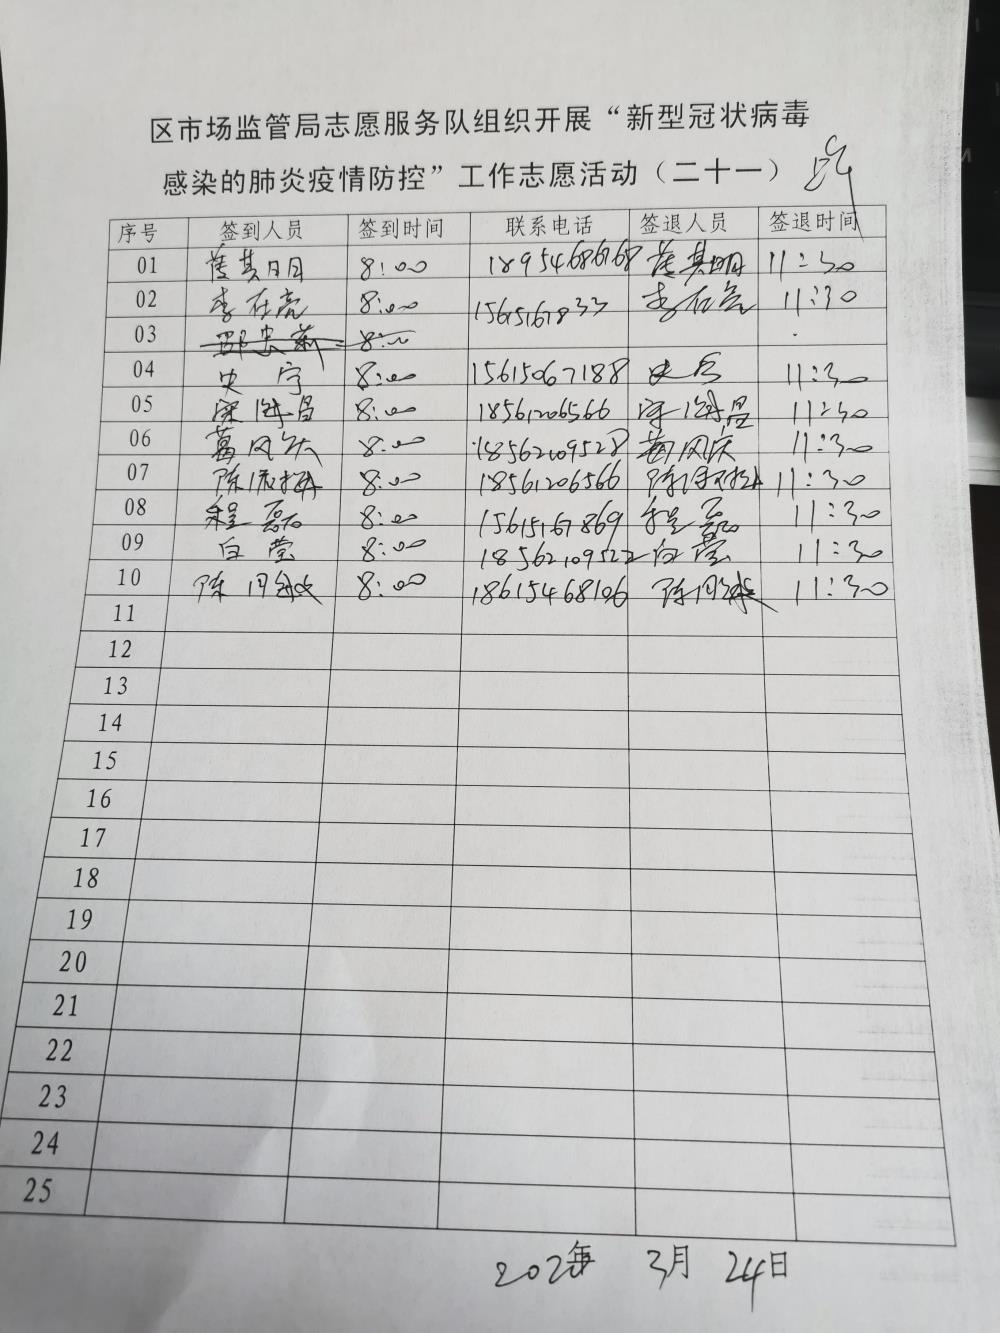 区市场监管局志愿服务队组织开展“新型冠状病毒
感染的肺炎疫情防控”工作志愿活动（二十一）
序号 签到人员 签到时间 联系电话 签退人员 签退时间
01 8:00 11:30
02 李在亮 8:00 李在亮 11:30
03 8:00
04 史宁 8:00 15615067188 史宁 11:30
05 8:00 18561206566 11:30
06 葛风庆 8:00 18562109528 葛风庆 11:30
07 8:00 18561206566 11:30
08 程磊 8:00 15615167869 程磊 11:30
09 白莹 8:00 白莹 11:30
10 陈月敏 8:00 18615468106 陈月敏 11:30
11
12
13
14
15
16
17
18
19
20
21
22
23
24
25
年 3月 24日